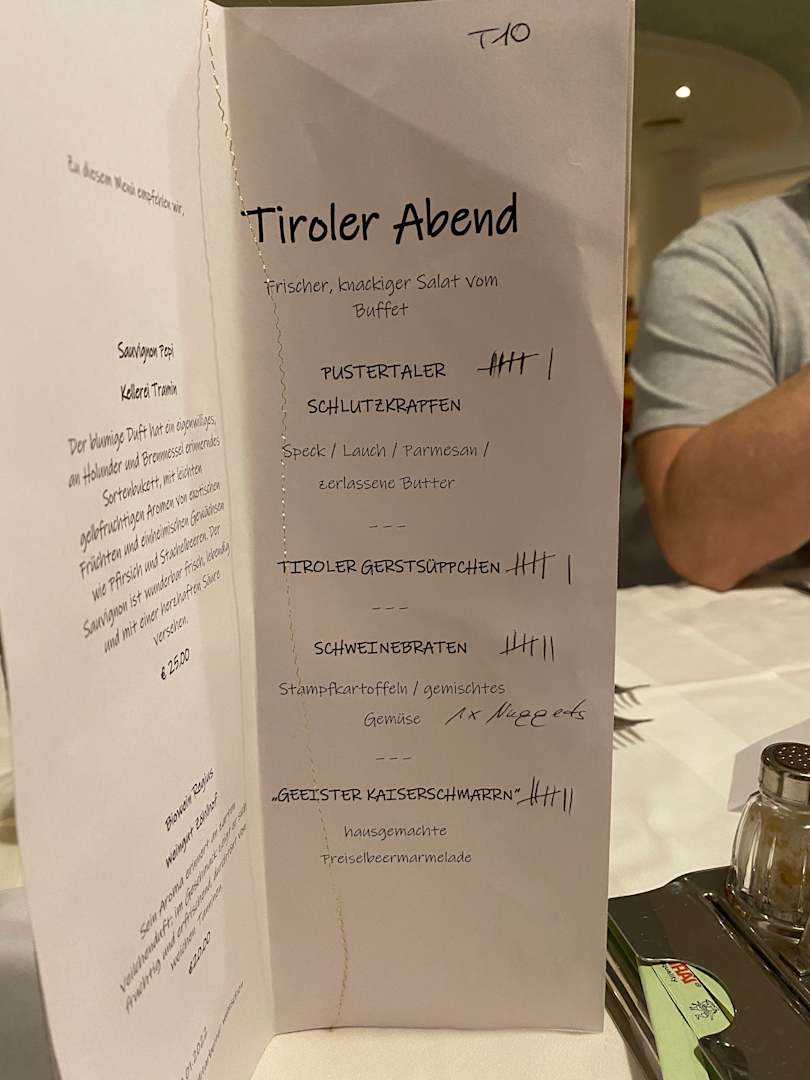 Zu diesem Menü empfehlen wir,
Sauvignon Pepi
Kellerei Tramin
Der blumige Duft hat ein eigenwilliges,
an Holunder und Brennnessel erinnerndes
Sortenbukett, mit leichten
gelbfruchtigen Aromen von exotischen
Früchten und einheimischen Gewächsen
wie Pfirsich und Stachelbeeren. Der
Sauvignon ist wunderbar frisch, lebendig
und mit einer herzhaften Säure
versehen.
€ 25.00
Biowein Regius
Weingut Zöhlhof
Sein Aroma erinnert an zarten
Veilchenduft; im Geschmack zeigt er sich
fruchtig und erfrischend, durchsetzt von
weichen Tanninen.
€20.00
.01.2022
T10
Tiroler Abend
Frischer, knackiger Salat vom
Buffet
PUSTERTALER
SCHLUTZKRAPFEN
Speck / Lauch / Parmesan /
zerlassene Butter
---
TIROLER GERSTSÜPPCHEN
---
SCHWEINEBRATEN
Stampfkartoffeln / gemischtes
Gemüse 1x Nuggets
---
„GEEISTER KAISERSCHMARRN"
hausgemachte
Preiselbeermarmelade